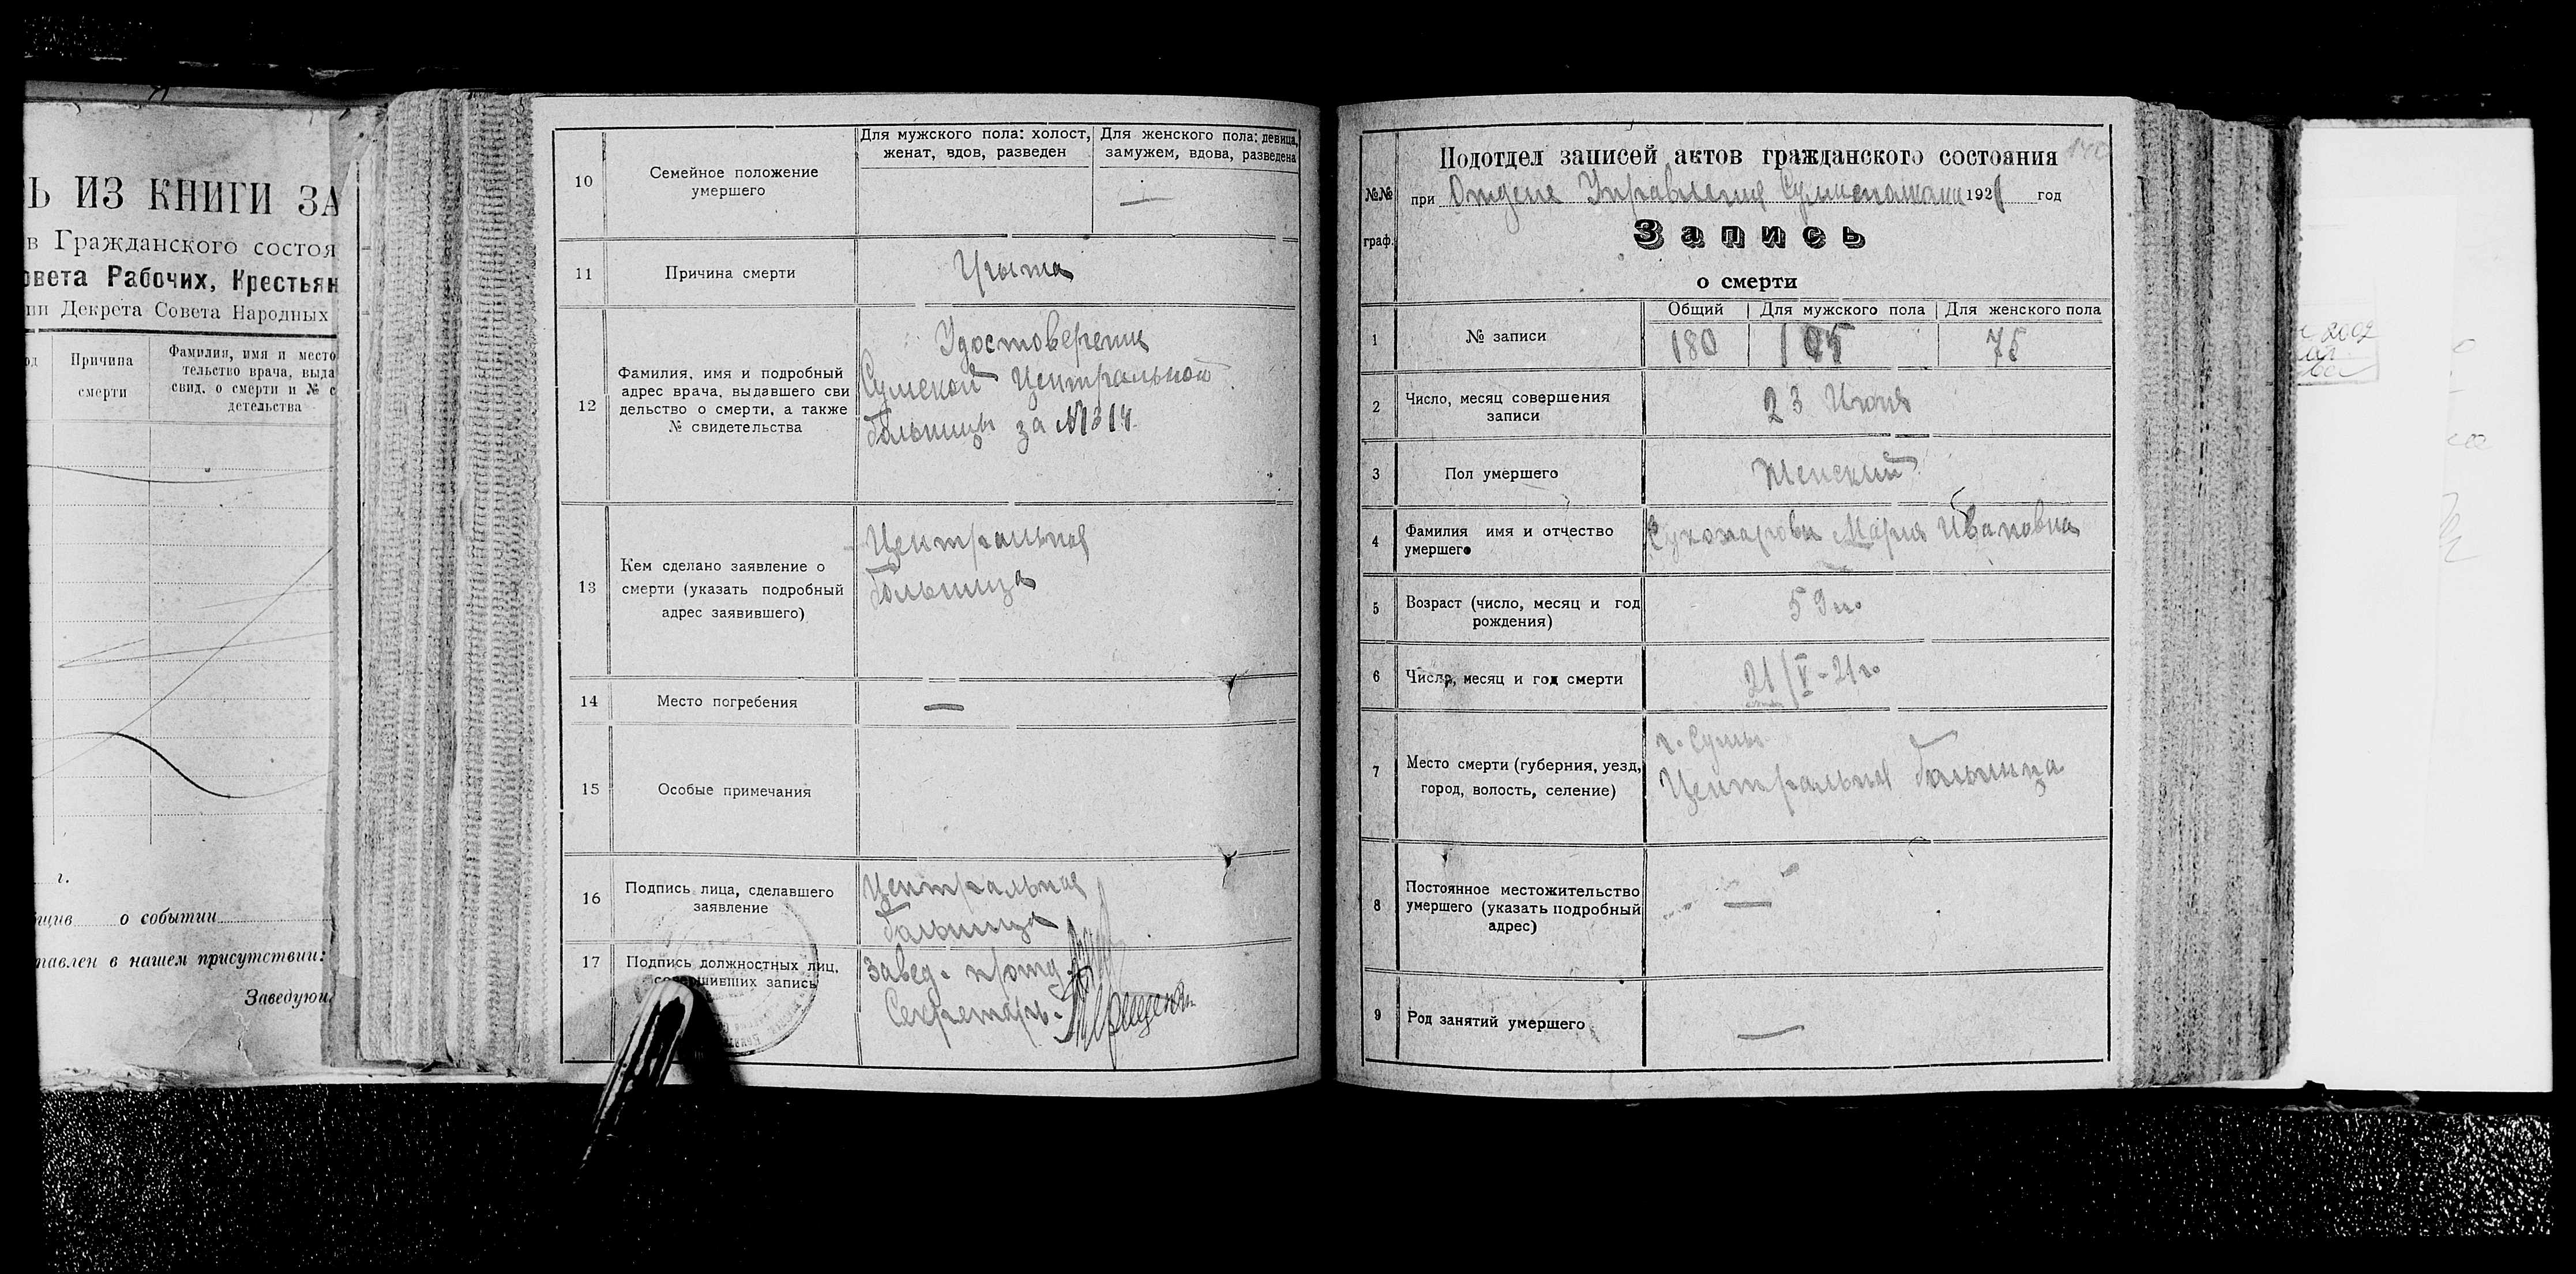 Ь ИЗ КНИГИ ЗА
в Гражданского состоя
овета Рабочих, Крестьян
ии Декрета Совета Народных
Причина
смерти
Фамилия, имя и место
тельство врача, выда
свид. о смерти и № с
детельства
г.
о событии
тавлен в нашем присутствии:
Заведующ
10
Семейное положение
умершего
Для мужского пола: холост,
женат, вдов, разведен
Для женского пола: девица,
замужем, вдова, разведена
—
11
Причина смерти
12
Фамилия, имя и подробный
адрес врача, выдавшего сви
дельство о смерти, а также
№ свидетельства
Удостоверение
Сумской Центральной
больницы за №1314
13
Кем сделано заявление о
смерти (указать подробный
адрес заявившего)
Центральная
больница
14
Место погребения
—
15
Особые примечания
16
Подпись лица, сделавшего
заявление
Центральная
больница
17
Подпись должностных лиц,
совершивших запись
Завед.
Секретарь.
Подотдел записей актов гражданского состояния
№№
граф.
при Отделе Управления 1921 год
Запись
о смерти
1
№ записи
Общий
Для мужского пола
Для женского пола
180
105
75
2
Число, месяц совершения
записи
23 Июня
3
Пол умершего
Женский
4
Фамилия имя и отчество
умершего
Мария Ивановна
5
Возраст (число, месяц и год
рождения)
59 л.
6
Число, месяц и год смерти
21/V-21 г.
7
Место смерти (губерния, уезд,
город, волость, селение)
г. Сумы
Центральная больница
8
Постоянное местожительство
умершего (указать подробный
адрес)
—
9
Род занятий умершего
—